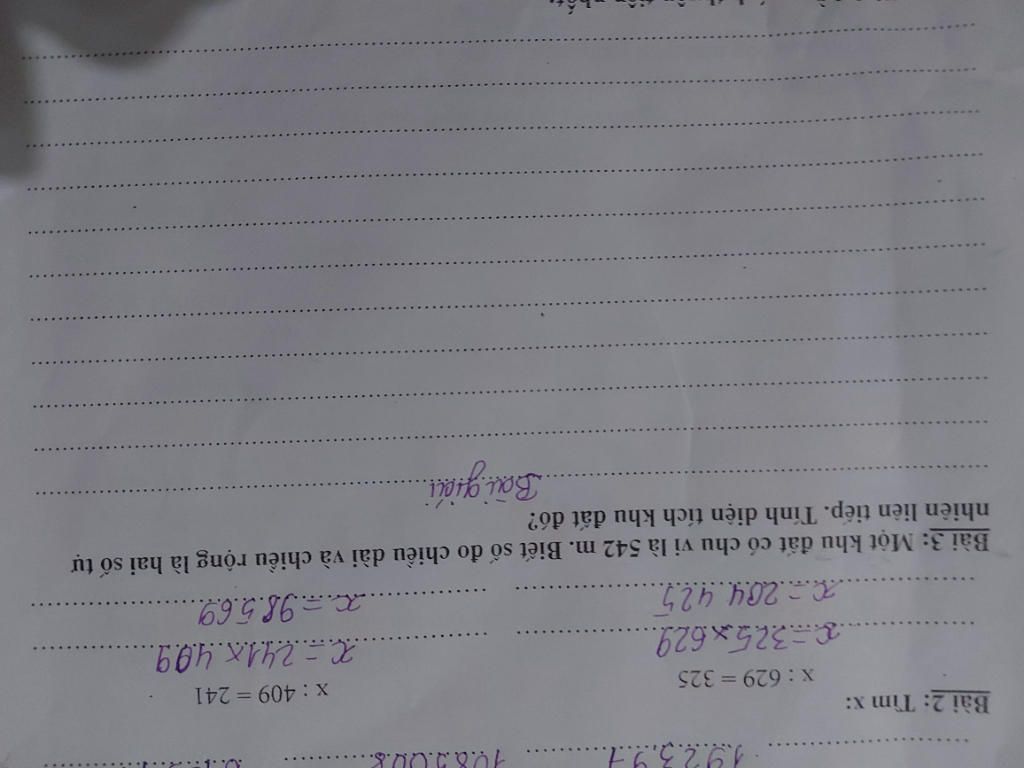 Bài 2: Tìm x:
x : 629 = 325 x : 409 = 241
x = 325 x 629 x = 241 x 409
x = 204 425 x = 98569
Bài 3: Một khu đất có chu vi là 542 m. Biết số đo chiều dài và chiều rộng là hai số tự
nhiên liên tiếp. Tính diện tích khu đất đó?
Bài giải